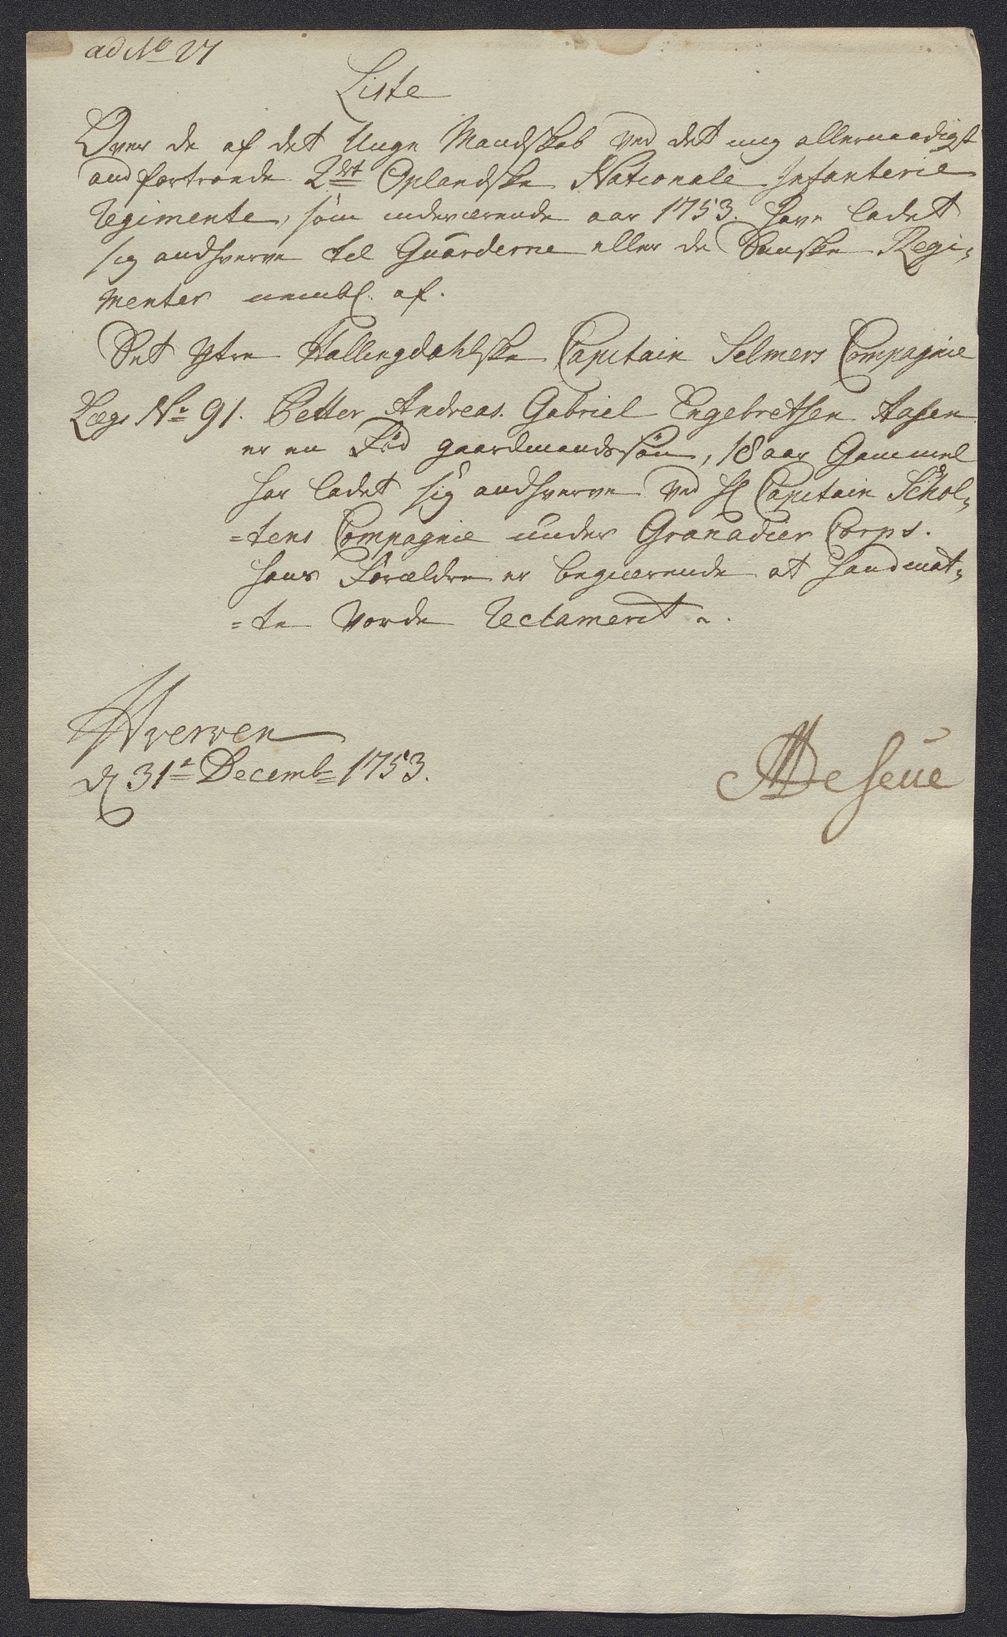 ad No 27
Liste
Over de af det Unge Mandskab ved det mig allernaadigst
andfortroede 2det Oplandske Nationale Infanterie
Regimente, som indeværende aar 1753. have ladet
sig andhverve til Guarderne eller de Danske Regi-
menter nembl. af.
Det Ytre Hallingdahlske Capitain Selmers Compagnie
Lægs No 91. Petter Andreas Gabriel Engebretsen Aasen
er en Fød gaardmandssøn, 18 aar Gammel
har ladet sig andhverve ved H Capitain Schol-
=tens Compagnie under Granadier Corps.
hans Forældre er begierende at hand mat-
=te vorde Reclamerit.
Hverven
d 31te Decembr 1753.
De Seue